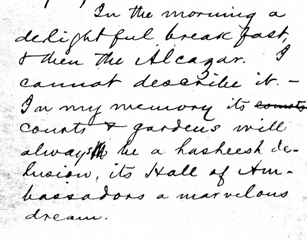 In the morning a
delightful breakfast,
& then the Alcazar. I
cannot describe it. –
In my memory its
courts & gardens will
always be a hasheesh de-
lusion, its Hall of Am-
bassadors a marvelous
dream.